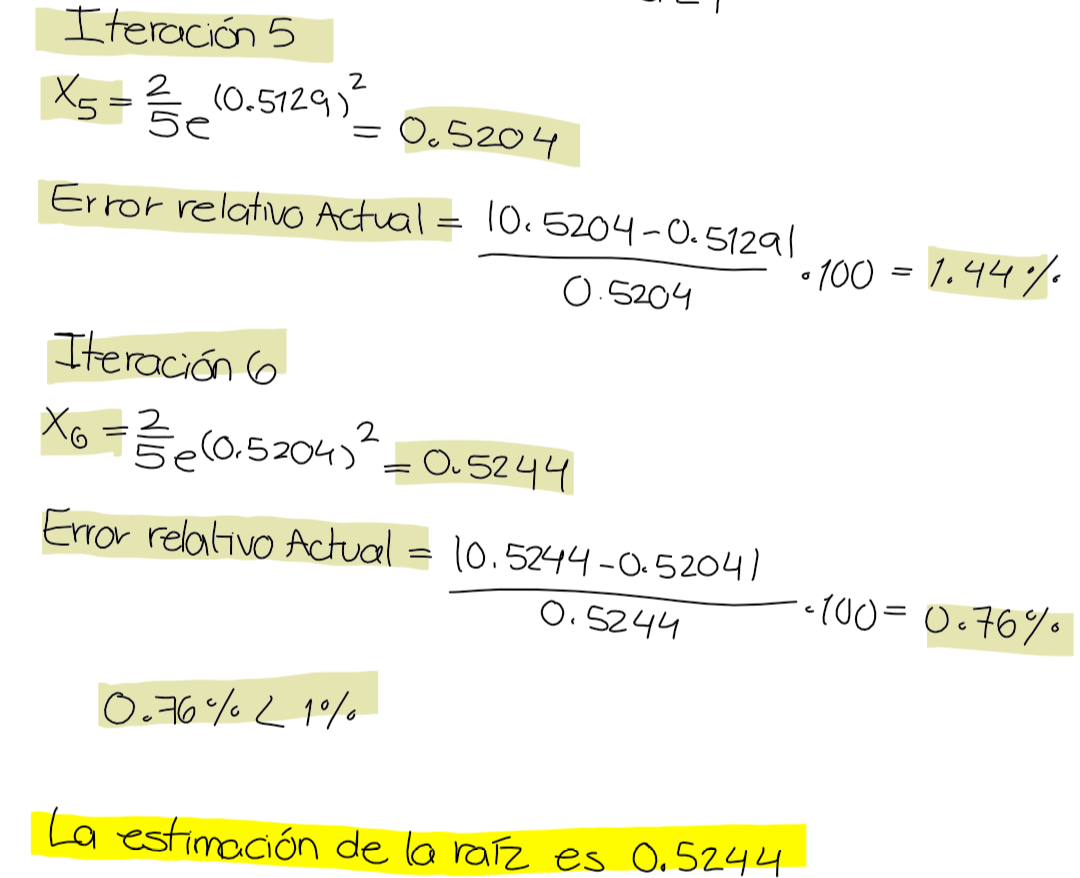 Iteración 5
X₅ = 2/5 e^(0.5129)² = 0.5204
Error relativo Actual = |0.5204-0.5129| / 0.5204 · 100 = 1.44%
Iteración 6
X₆ = 2/5 e^(0.5204)² = 0.5244
Error relativo Actual = |0.5244-0.5204| / 0.5244 · 100 = 0.76%
0.76% < 1%
La estimación de la raíz es 0.5244